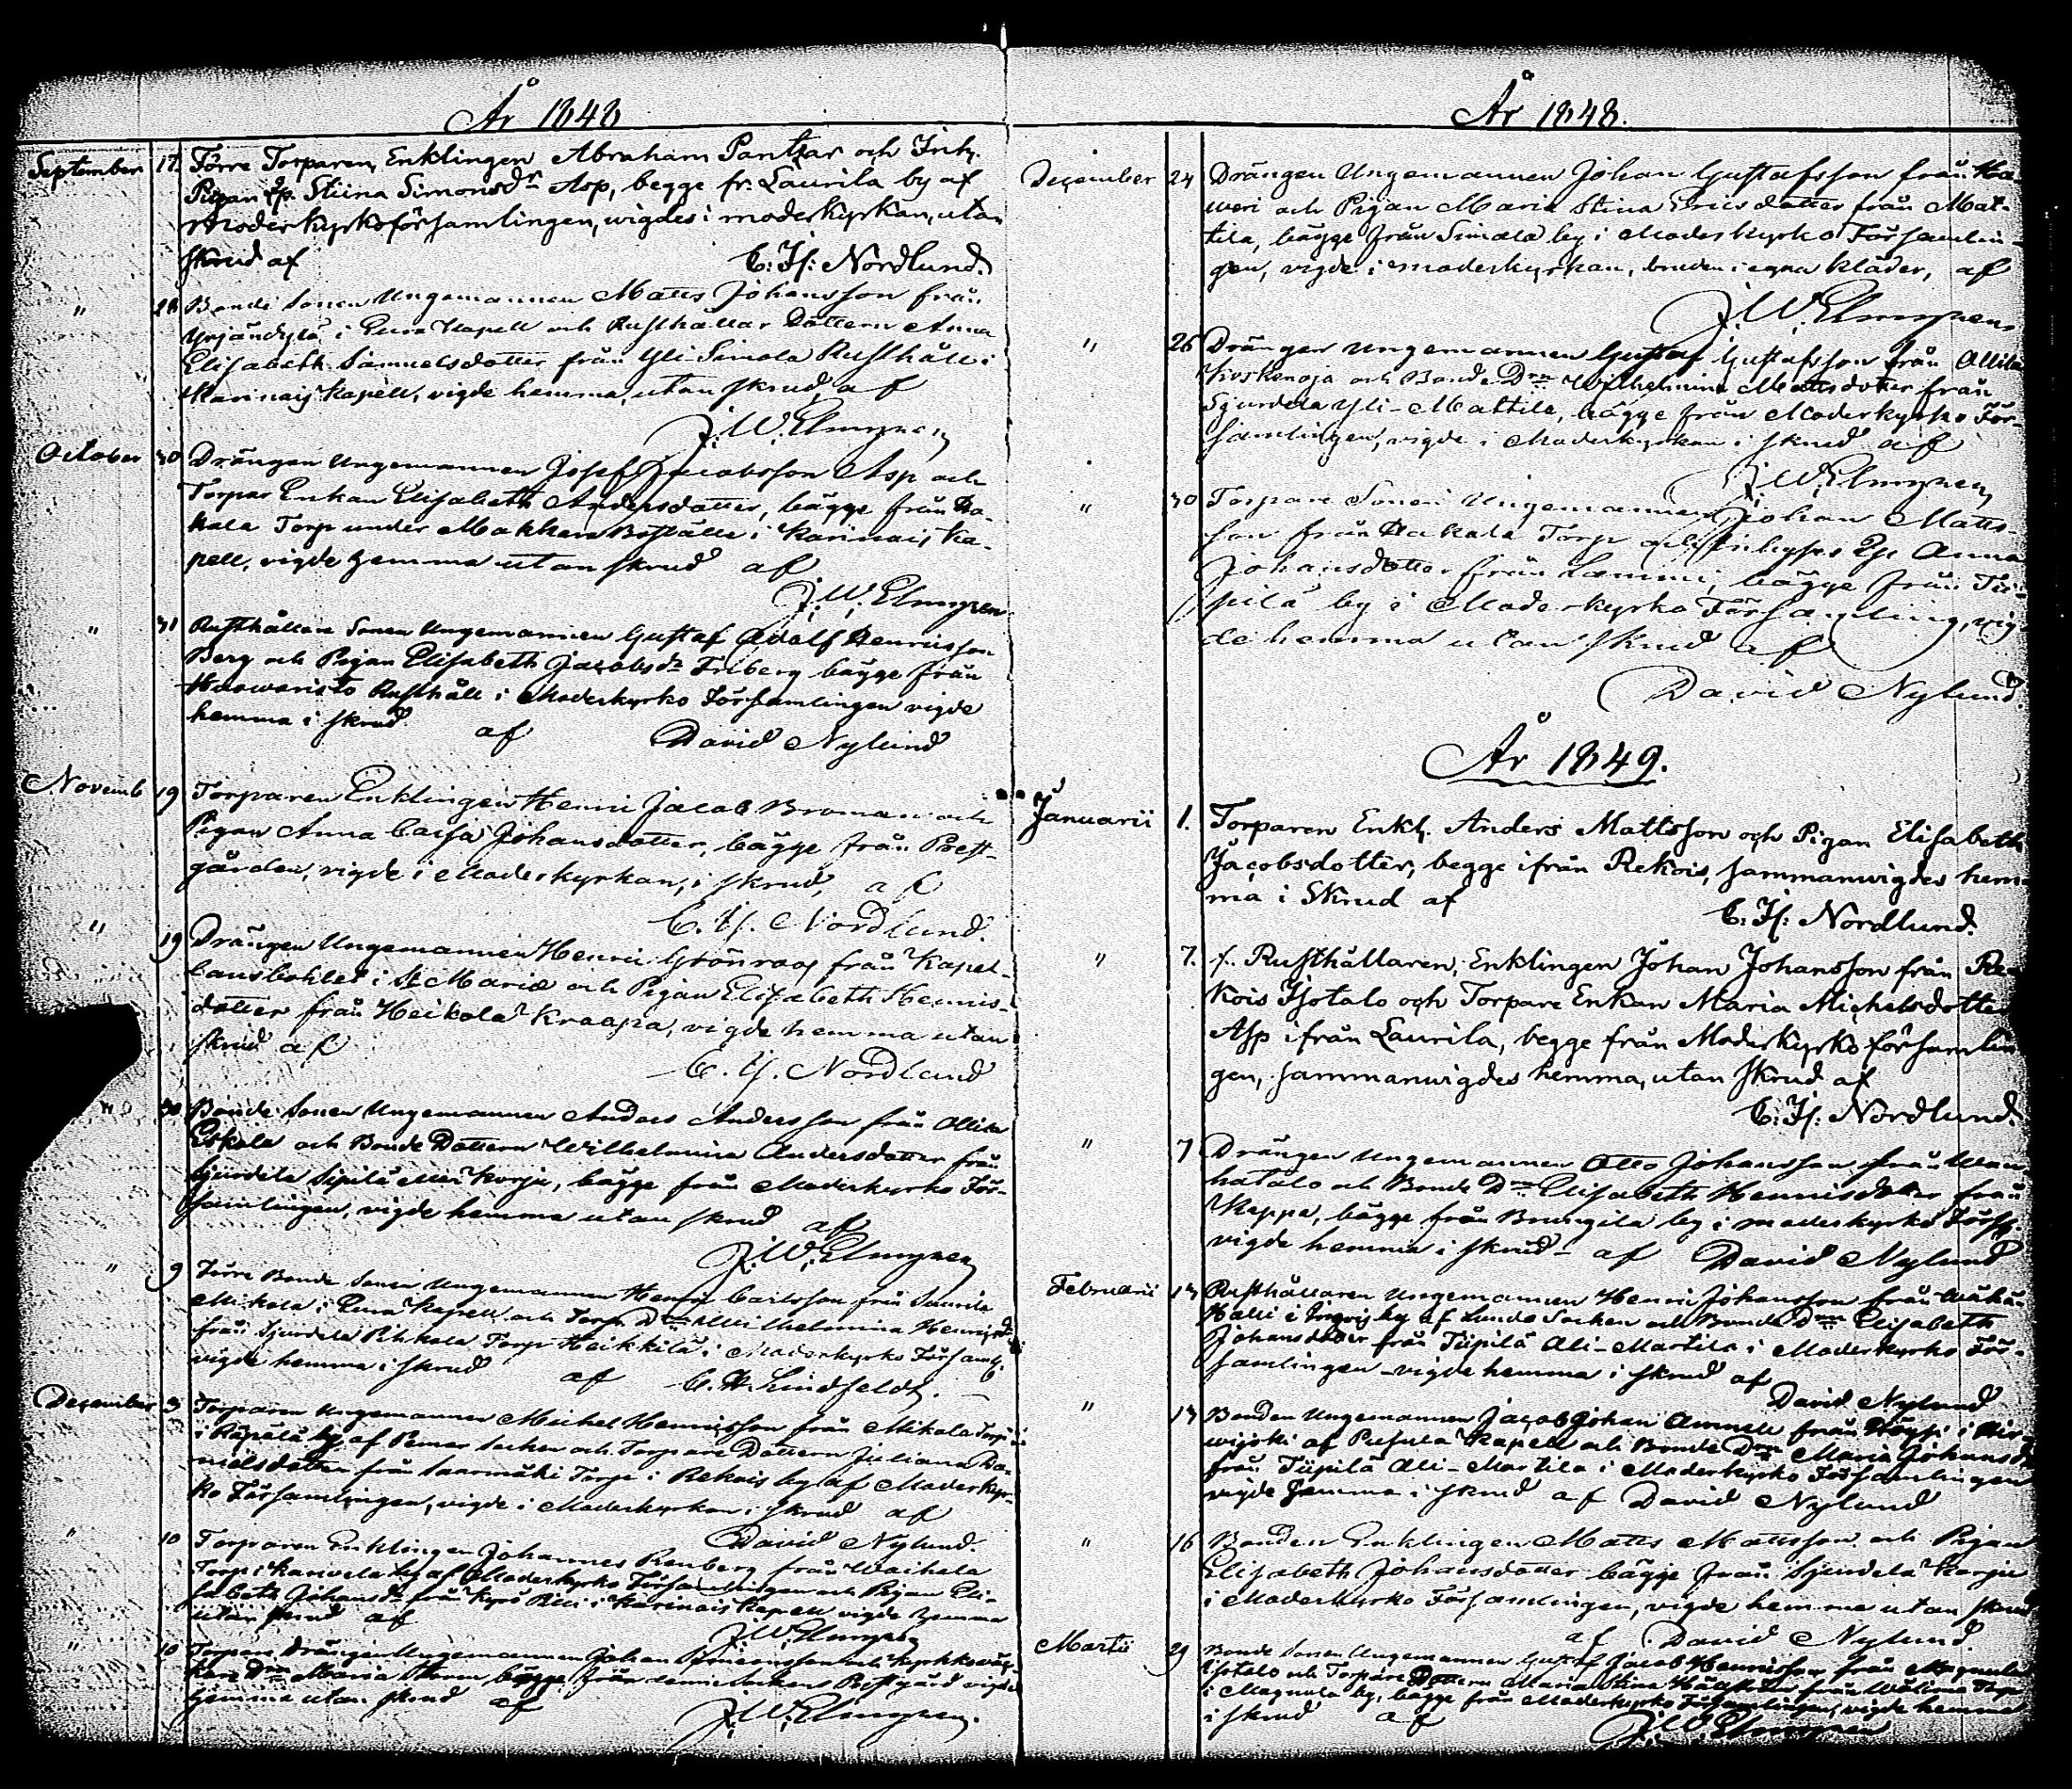 År 1848
September 17. Förre Torparen, Enklingen Abraham Pantzar och Inh.
Pigan Stiina Simonsdr Asp, begge fr. Laurila by af
Moderkyrkoförsamlingen, wigdes i moderkyrkan, utan
skrud af C: H: Nordlund.
" 28 Bonde Sonen Ungemannen Matts Johansson från
Yrjänkylä i Eura Kapell och Rusthållar Dottern Anna
Elisabeth Samuelsdotter från Yli-Simola Rusthåll i
Karinais Kapell, vigde hemma, utan skrud, af
J. W. Elmgren
October 30 Drängen Ungemannen Josef Jacobsson Asp och
Torpar Enkan Elisabeth Andersdotter, bägge från Ha-
kala Torp under Makken Boställe i Karinais Ka-
pell, vigde hemma utan skrud af
J. W. Elmgren
" 31 Rusthållare Sonen Ungemannen Gustaf Adolf Henricsson
Berg och Pigan Elisabeth Jacobsdr Friberg bägge från
Rusthåll i Moderkyrko Församlingen vigde
hemma i skrud af David Nylund
Novemb 19 Torparen Enklingen Henric Jacob Broman och
Pigan Anna Caisa Johansdotter, bägge från Prest-
gården, vigde i Moderkyrkan, i skrud, af
C. H. Nordlund.
" 19 Drängen Ungemannen Henric Grönroos från Kapel-
lansbohlet i St Mariæ och Pigan Elisabeth Henrics-
dotter från Heikola Kraapa, vigde hemma utan
skrud af
C. H. Nordlund
30 Bonde Sonen Ungemannen Anders Andersson från Ollila
Eskola och Bonde Dottern Wilhelmina Andersdotter från
Sjurdela Sipilä Karju, bägge från Moderkyrko För-
samlingen, vigde hemma utan skrud af
J. W. Elmgren
" 9 Förre Bonde Sonen Ungemannen Henric Carlsson från
Mikola i Eura Kapell och Torp. Drn Wilhelmina Henricsdr
från Sjurdela Pihkala Torp Heikkilä i Moderkyrko Församl.
vigde hemma i skrud af C. H. Lindfeldt.
December 3 Torparen Ungemannen Michel Henricsson från Mikola Torp
i by af Pemar Socken och Torpare Dottern Juliana Da-
nielsdotter från Saarmäki Torp i Rekois by af Moderkyr-
ko Församlingen, vigde i Moderkyrkan i skrud af
David Nylund.
" 10 Torparen Enklingen Johannes Renberg från
Torp i Karvela by af Moderkyrko Församlingen och Pigan Eli-
sabeth Johansdr från Kyrö i Karinais Kapell vigde hemma
utan skrud af
J. W. Elmgren
" 10 Drängen Ungemannen Johan
Drn Maria bägge från vigde
hemma utan skrud af
J. W. Elmgren.
År 1848.
December 24 Drängen Ungemannen Johan Gustafsson från
och Pigan Maria Stina Ericsdotter från Mat-
tila, bägge från Simala by i Moderkyrko Församlin-
gen, vigde i moderkyrkan, bruden i egna kläder, af
J. W. Elmgren
" 26 Drängen Ungemannen Gustaf Gustafsson från Ollila
och Bonde Drn Wilhelmina Mattsdotter från
Sjurdela Yli-Mattila, bägge från Moderkyrko För-
samlingen, vigde i Moderkyrkan i skrud af
J. W. Elmgren
" 30 Torpare Sonen Ungemannen Johan Matts-
son från Hakala Torp och Anna
Johansdotter från Lammi, bägge från Tii-
pilä by i Moderkyrko Församling, vig-
de hemma utan skrud af
David Nylund.
År 1849.
Januarii 1. Torparen Enkl. Anders Mattsson och Pigan Elisabeth
Jacobsdotter, begge ifrån Rekois, sammanwigdes hem-
ma i Skrud af C: H: Nordlund.
" 7. f. Rusthållaren, Enklingen Johan Johansson från Re-
kois Isotalo och Torpare Enkan Maria Michelsdotter
Asp ifrån Laurila, begge från Moderkyrko församlin
gen, sammanwigdes hemma, utan skrud af
C: H: Nordlund.
" 7 Drängen Ungemannen Otto Johansson från Wan-
hatalo och Bonde Drn Elisabeth Henricsdotter från
Kappa, bägge från by i moderkyrko Förs.
vigde hemma i skrud - af David Nylund
Februarii 13 Rusthållaren Ungemannen Henric Johansson från
i by af Lundo Socken och Bonde Drn Elisabeth
Johansdotter från Tiipilä Ali-Martila i Moderkyrko För-
samlingen - vigde hemma i skrud af
David Nylund
" 13 Bonden Ungemannen Jacob Johan från i
af Pusula Kapell och Bonde Drn Maria Johansdr
från Tiipilä Ali-Martila i Moderkyrko Församlingen
vigde hemma i skrud af David Nylund
" 16 Bonden Enklingen Matts Mattsson och Pigan
Elisabeth Johansdotter bägge från Sjurdela Karju
i Moderkyrko Församlingen, vigde hemma utan skrud
af David Nylund.
Martii 29 Bonde Sonen Ungemannen Gustaf Jacob Henricsson från Magnula
Isotalo och Torpare Dottern Maria Stina från Torp
i Magnula by, bägge från Moderkyrko Församlingen, vigde hemma
i skrud af
J. W. Elmgren